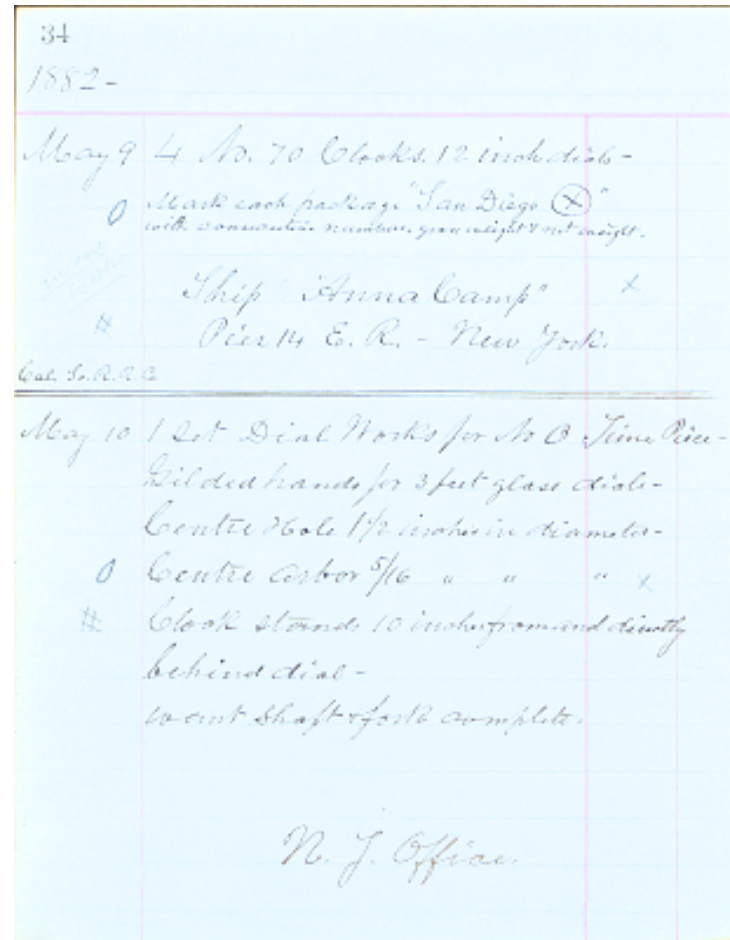 34
1882-
May 9 4 No. 70 Clocks. 12 inch dials-
O Mark each package "San Diego (X)"
with consecutive numbers, gross weight & net weight.
Ship "Anna Camp" X
# Pier 14 E. R. - New York.
Cal. So. R. R. Co
May 10 1 Set Dial Works for No 3 Time Piece-
Gilded hands for 3 feet glass dials-
Centre Hole 1 1/2 inches in diameter-
O Centre arbor 5/16 " " " X
# Clock stands 10 inches from and directly
behind dial-
want shaft & fork complete.
N. Y. Office.